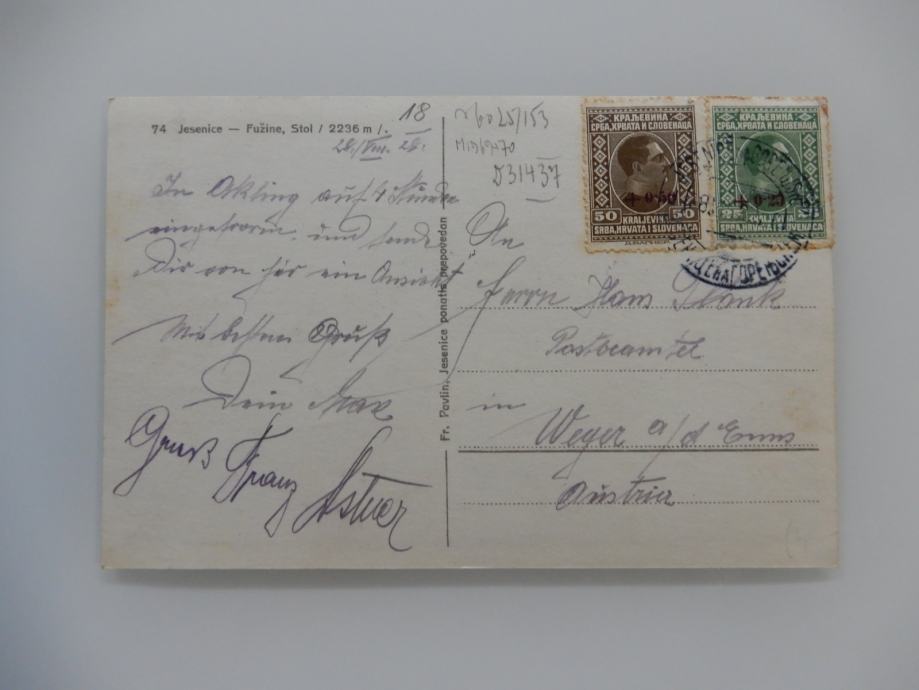 74 Jesenice — Fužine, Stol / 2236 m /.
18
28./VIII. 28.
In Aßling auf 4 Stunde
eingetroffen und sende
Dir von hier ein Ansicht
Mit besten Gruß
Dein Max
Gruß Franz
Fr. Pavlin, Jesenice ponatis prepovedan
D31437
КРАЉЕВИНА
СРБА, ХРВАТА И СЛОВЕНАЦА
+ 0·50
50 KRALJEVINA 50
SRBA, HRVATA I SLOVENACA
КРАЉЕВИНА
СРБА, ХРВАТА И СЛОВЕНАЦА
+ 0·25
25 KRALJEVINA
SRBA, HRVATA I SLOVENACA
An
Herrn Hans Plank
Postbeamter
in
Weyer a/d Enns
Austria